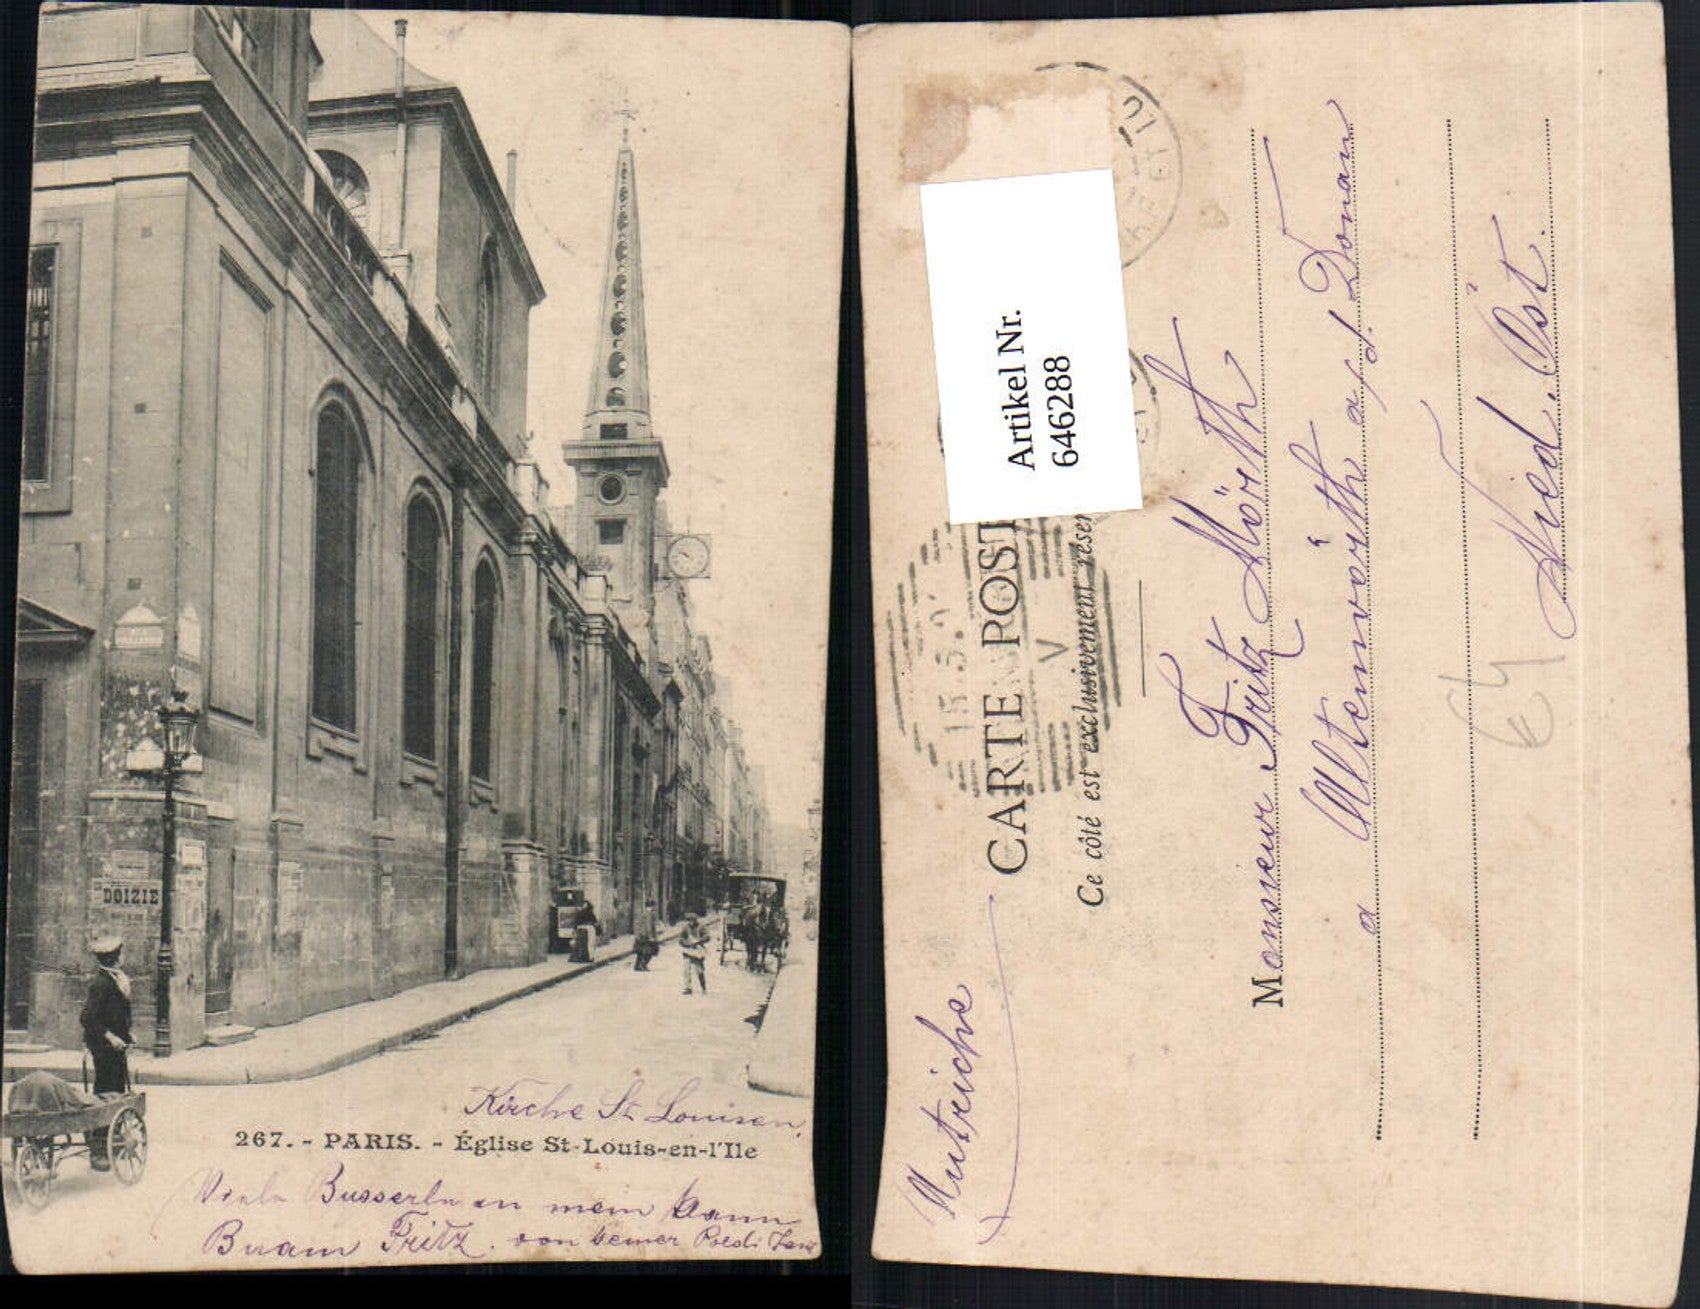 DOIZIE
Kirche St Louisen.
267. - PARIS. - Église St-Louis-en-l'Ile
Viele Busserln an mein
Buam Fritz. von seiner Poldi
Artikel Nr.
646288
CARTE POST
Ce côté est exclusivement réser
Autriche
Monsieur Fritz Mörth
a Altenwörth a/d. Donau
Nied. Öst.
64